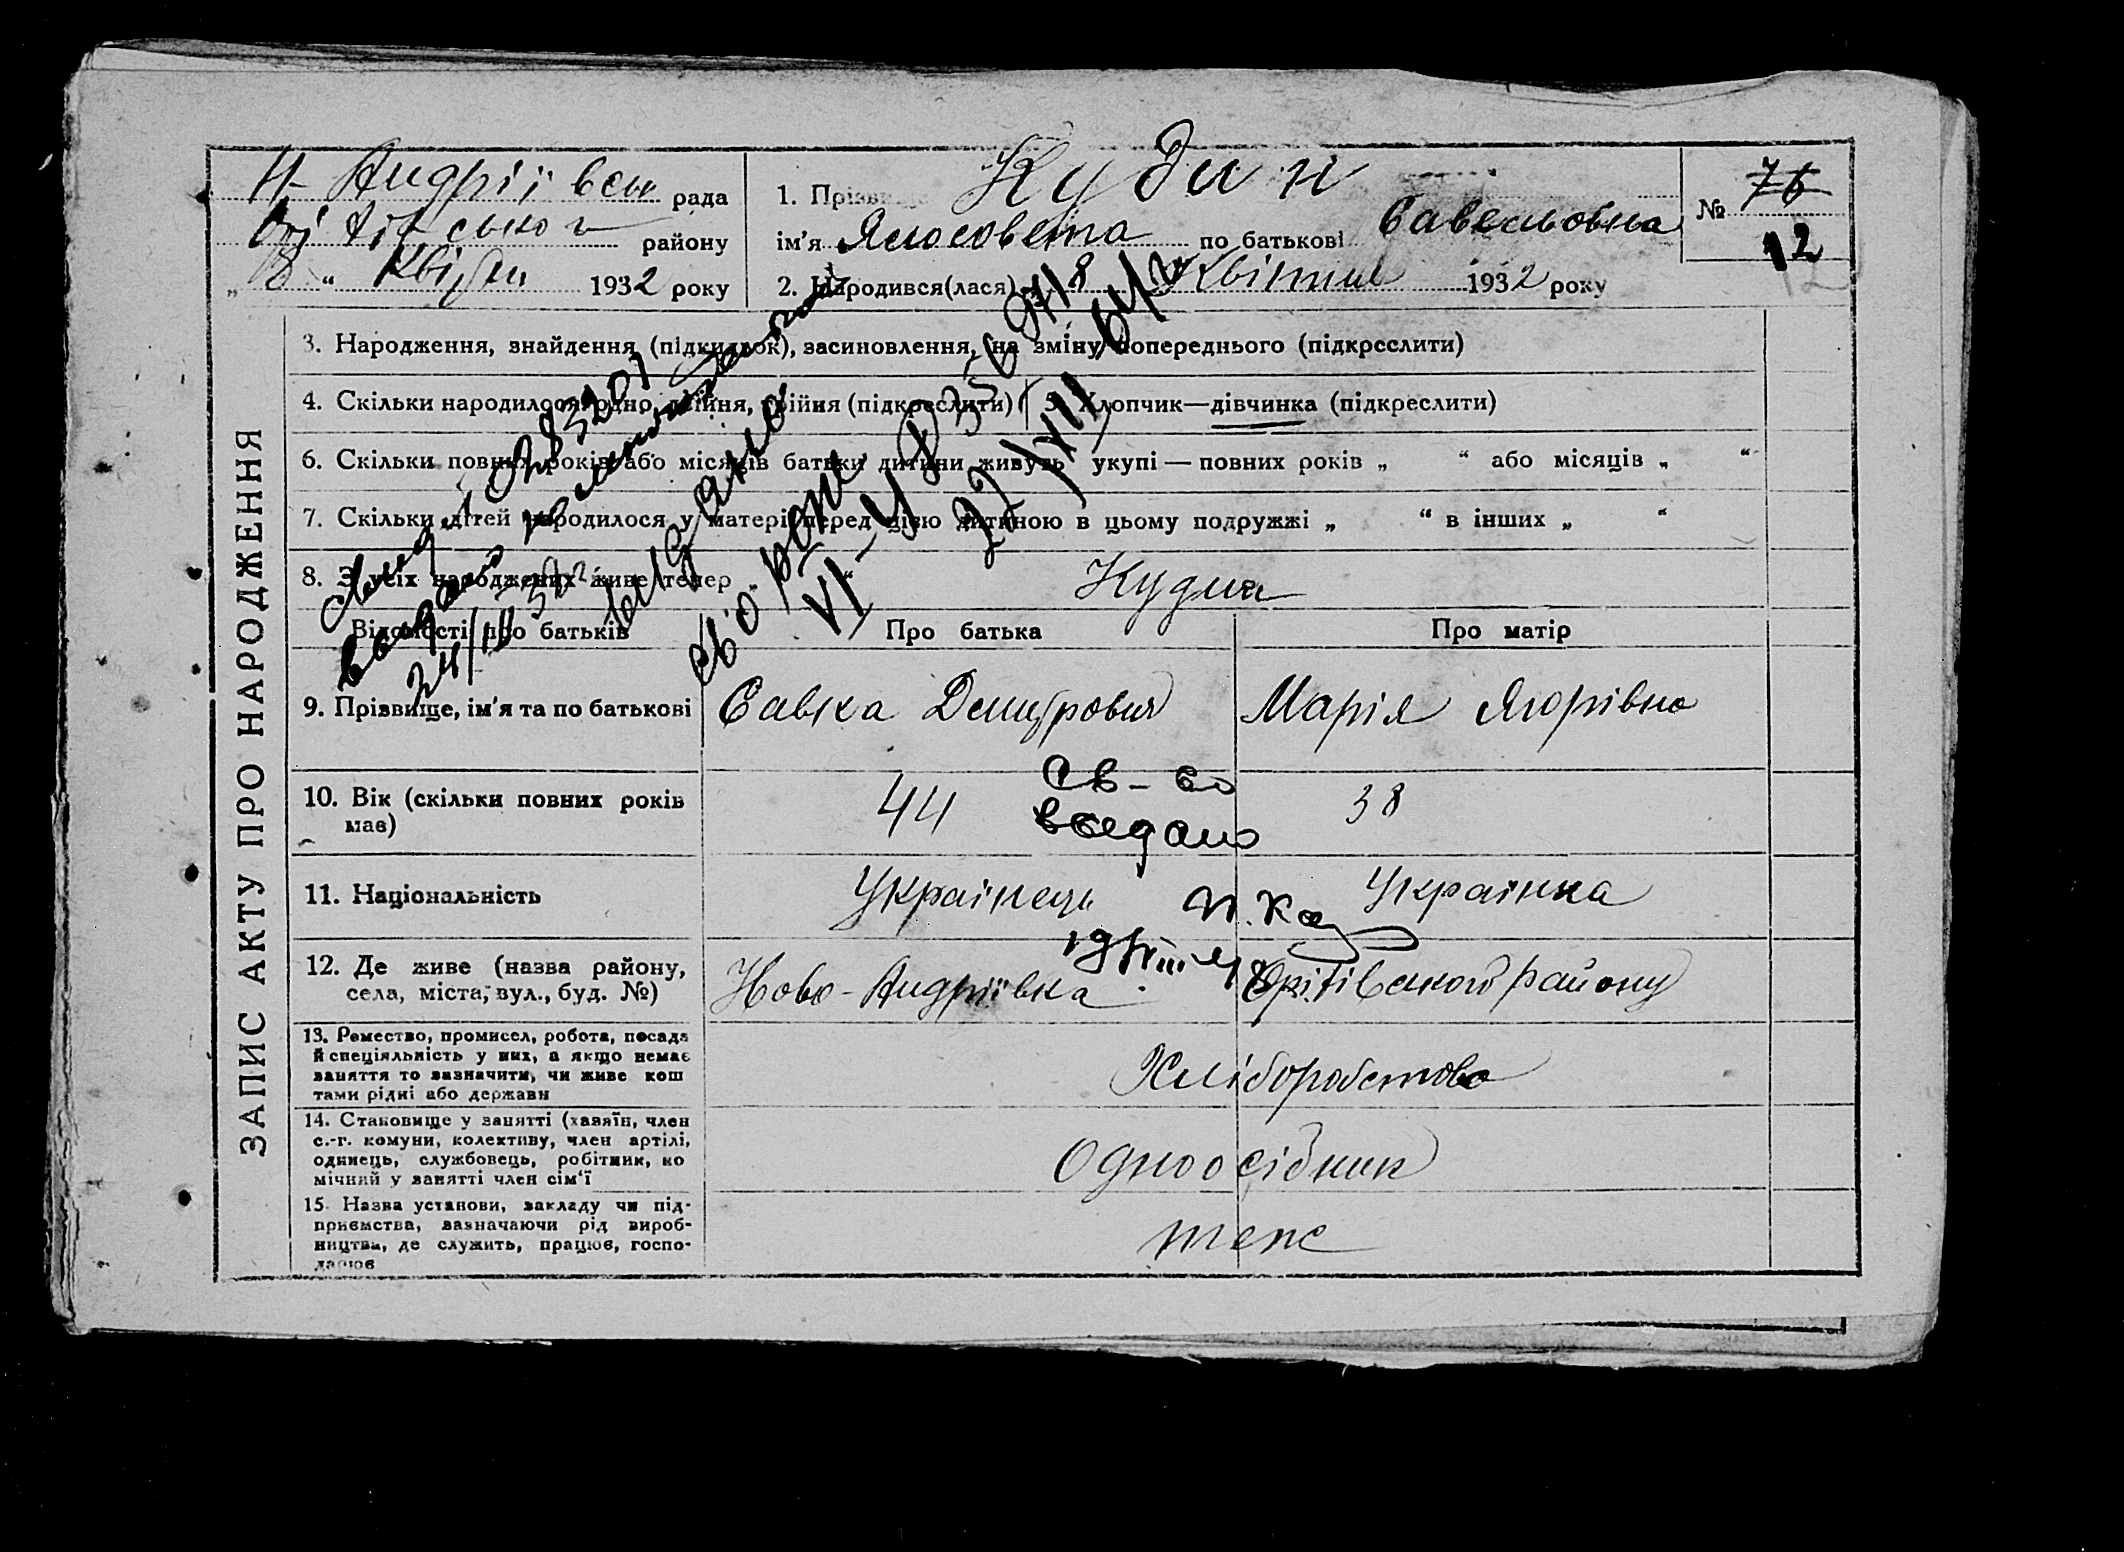 Н-Андріївськ рада
району
"8" Квітня 1932 року
1. Прізвище Кудин
ім'я Ялисовета по батькові Савельовна
№ 76
12
2. Народився(лася) 8 Квітня 1932 року
ЗАПИС АКТУ ПРО НАРОДЖЕННЯ
3. Народження, знайдення (підкидьок), засиновлення, (на зміну) попереднього (підкреслити)
4. Скільки народилося: одно, двійня, трійня (підкреслити) 5. Хлопчик—дівчинка (підкреслити)
6. Скільки повних років або місяців батьки дитини живуть укупі — повних років „ “ або місяців „ “
7. Скільки дітей народилося у матері перед цією дитиною в цьому подружжі „ “ в інших „ “
8. З усіх народжених живе тепер „ “
Кудин
Відомості про батьків Про батька Про матір
9. Прізвище, ім'я та по батькові Савка Дмитрович Марія Ягорівна
10. Вік (скільки повних років має) 44 38
св-во
выдано
11. Національність Українець Українка
12. Де живе (назва району, села, міста, вул., буд. №) Ново-Андріївка Оріхівського району
13. Ремество, промисел, робота, посада
й спеціяльність у них, а якщо немає
заняття то зазначити, чи живе кош
тами рідні або держави
Хліборобство
14. Становище у занятті (хазяїн, член
с.-г. комуни, колективу, член артілі,
одинець, службовець, робітник, по
мічний у занятті член сім'ї
Одноосібник
15. Назва установи, закладу чи під-
приємства, зазначаючи рід вироб-
ництва, де служить, працює, госпо-
дарює
теже
выдано